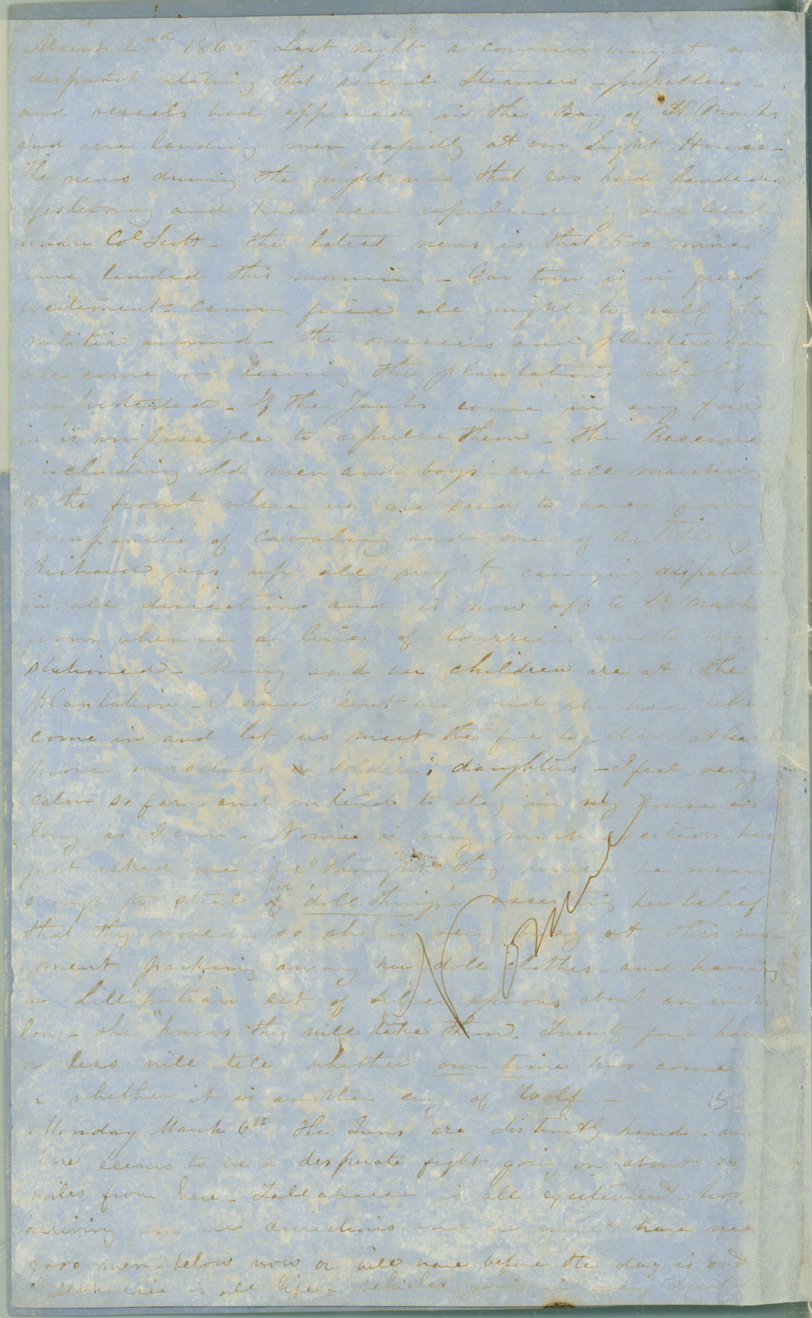 March 2nd 1865 Last night a courier brought a
dispatch stating that several Steamers - propellers -
and vessels had appeared in the Bay of St Marks
and were landing men rapidly at our Light House -
The news during the night was that 500 had landed
yesterday and had been repulsed by our
under Col Scott - the latest news is that 500 more
have landed this morning - Our town is in great
excitement - Cannon fired all night to rally the
militia around - the overseers and planters
all come in leaving the plantations
unprotected - If the Yanks come in any force
it is impossible to repulse them - the Reserve
including old men and boys are all marching
to the front where we are said to have four
companies of cavalry and one of artillery -
Richard was up all night carrying dispatches
in all directions and is now off to St Marks
from whence a line of Courriers are to be
stationed - Mary and her children are at the
plantation - I have sent her word she had better
come in and let us meet the foe together at least
prove ourselves soldier's daughters - I feel very
calm so far - and intend to stay in my house as
long as I can - Nonie is very much excited has
just asked me if I thought they would be mean
enough to steal her "doll things" - asserting her belief
that they would - so she is very busy at this mo-
ment packing away her doll clothes - and having
a Lilliputian set of silver spoons about an inch
long - she "knows they will take them. Twenty four hours
or less will tell whether our time has come -
or whether it is another cry of Wolf -
15
Monday March 6th The Guns are distinctly heard - and
there seems to be a desperate fight going on about
miles from here - Tallahassee is all excitement
arriving from all directions and we must have
2000 men - below now or will have before the day is out
Tallahassee is all life - vehicles going in every